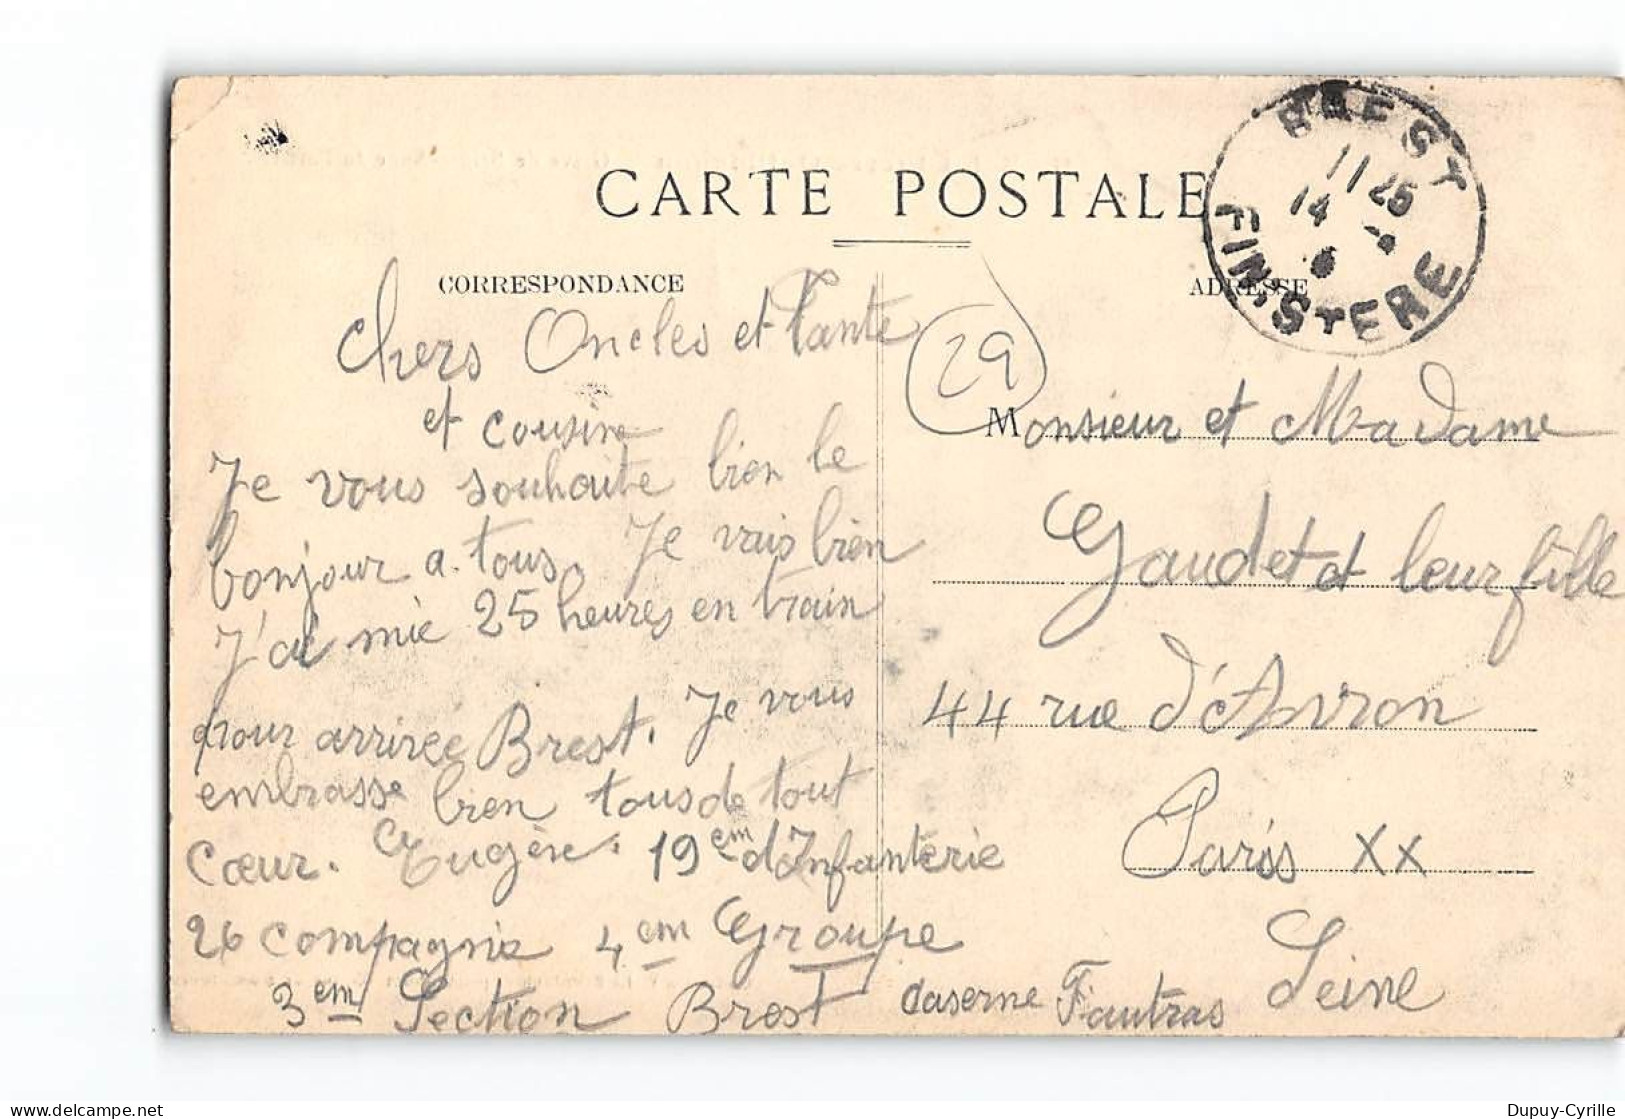 CARTE POSTALE
BREST
11 25
14
FINISTERE
CORRESPONDANCE
ADRESSE
29
Chers Oncles et Tante
et cousine
Je vous souhaite bien le
bonjour a tous. Je vais bien
J'ai mie 25 heures en train
pour arrivee Brest. Je vous
embrasse bien tous de tout
cœur. Eugène. 19em d'Infanterie
26 compagnie 4em Groupe
3em Section Brest caserne Fautras
Monsieur et Madame
Gaudet et leur fille
44 rue d'Avron
Paris XX
Seine
Dupuy-Cyrille